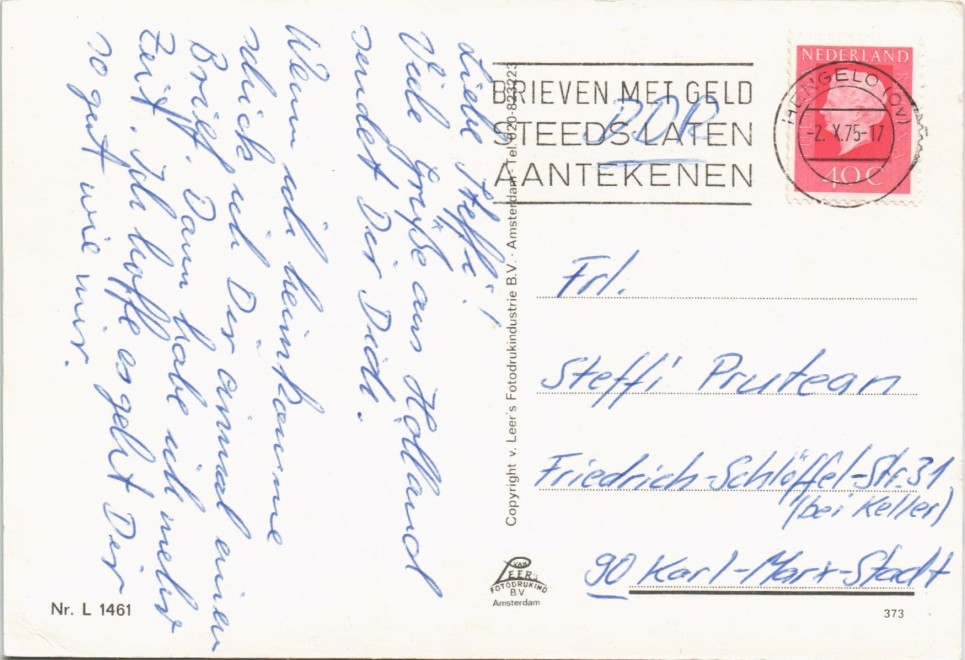 Liebe Steffi!
Viele Grüße aus Holland
sendet Dir Didi.
Wenn ich heimkomme
schick ich Dir einmal einen
Brief. Dann habe ich mehr
Zeit. Ich hoffe es geht Dir
so gut wie mir.
Nr. L 1461
Copyright v. Leer's Fotodrukindustrie B.V. - Amsterdam - Tel. 020-823223
VAN
LEER's
FOTODRUKIND
B.V.
Amsterdam
BRIEVEN MET GELD
STEEDS LATEN
AANTEKENEN
DDR
HENGELO (OV)
-2.X.75-17
NEDERLAND
40 C
Frl.
Steffi Prutean
Friedrich-Schlöffel-Str. 31
(bei Keller)
90 Karl-Marx-Stadt
373